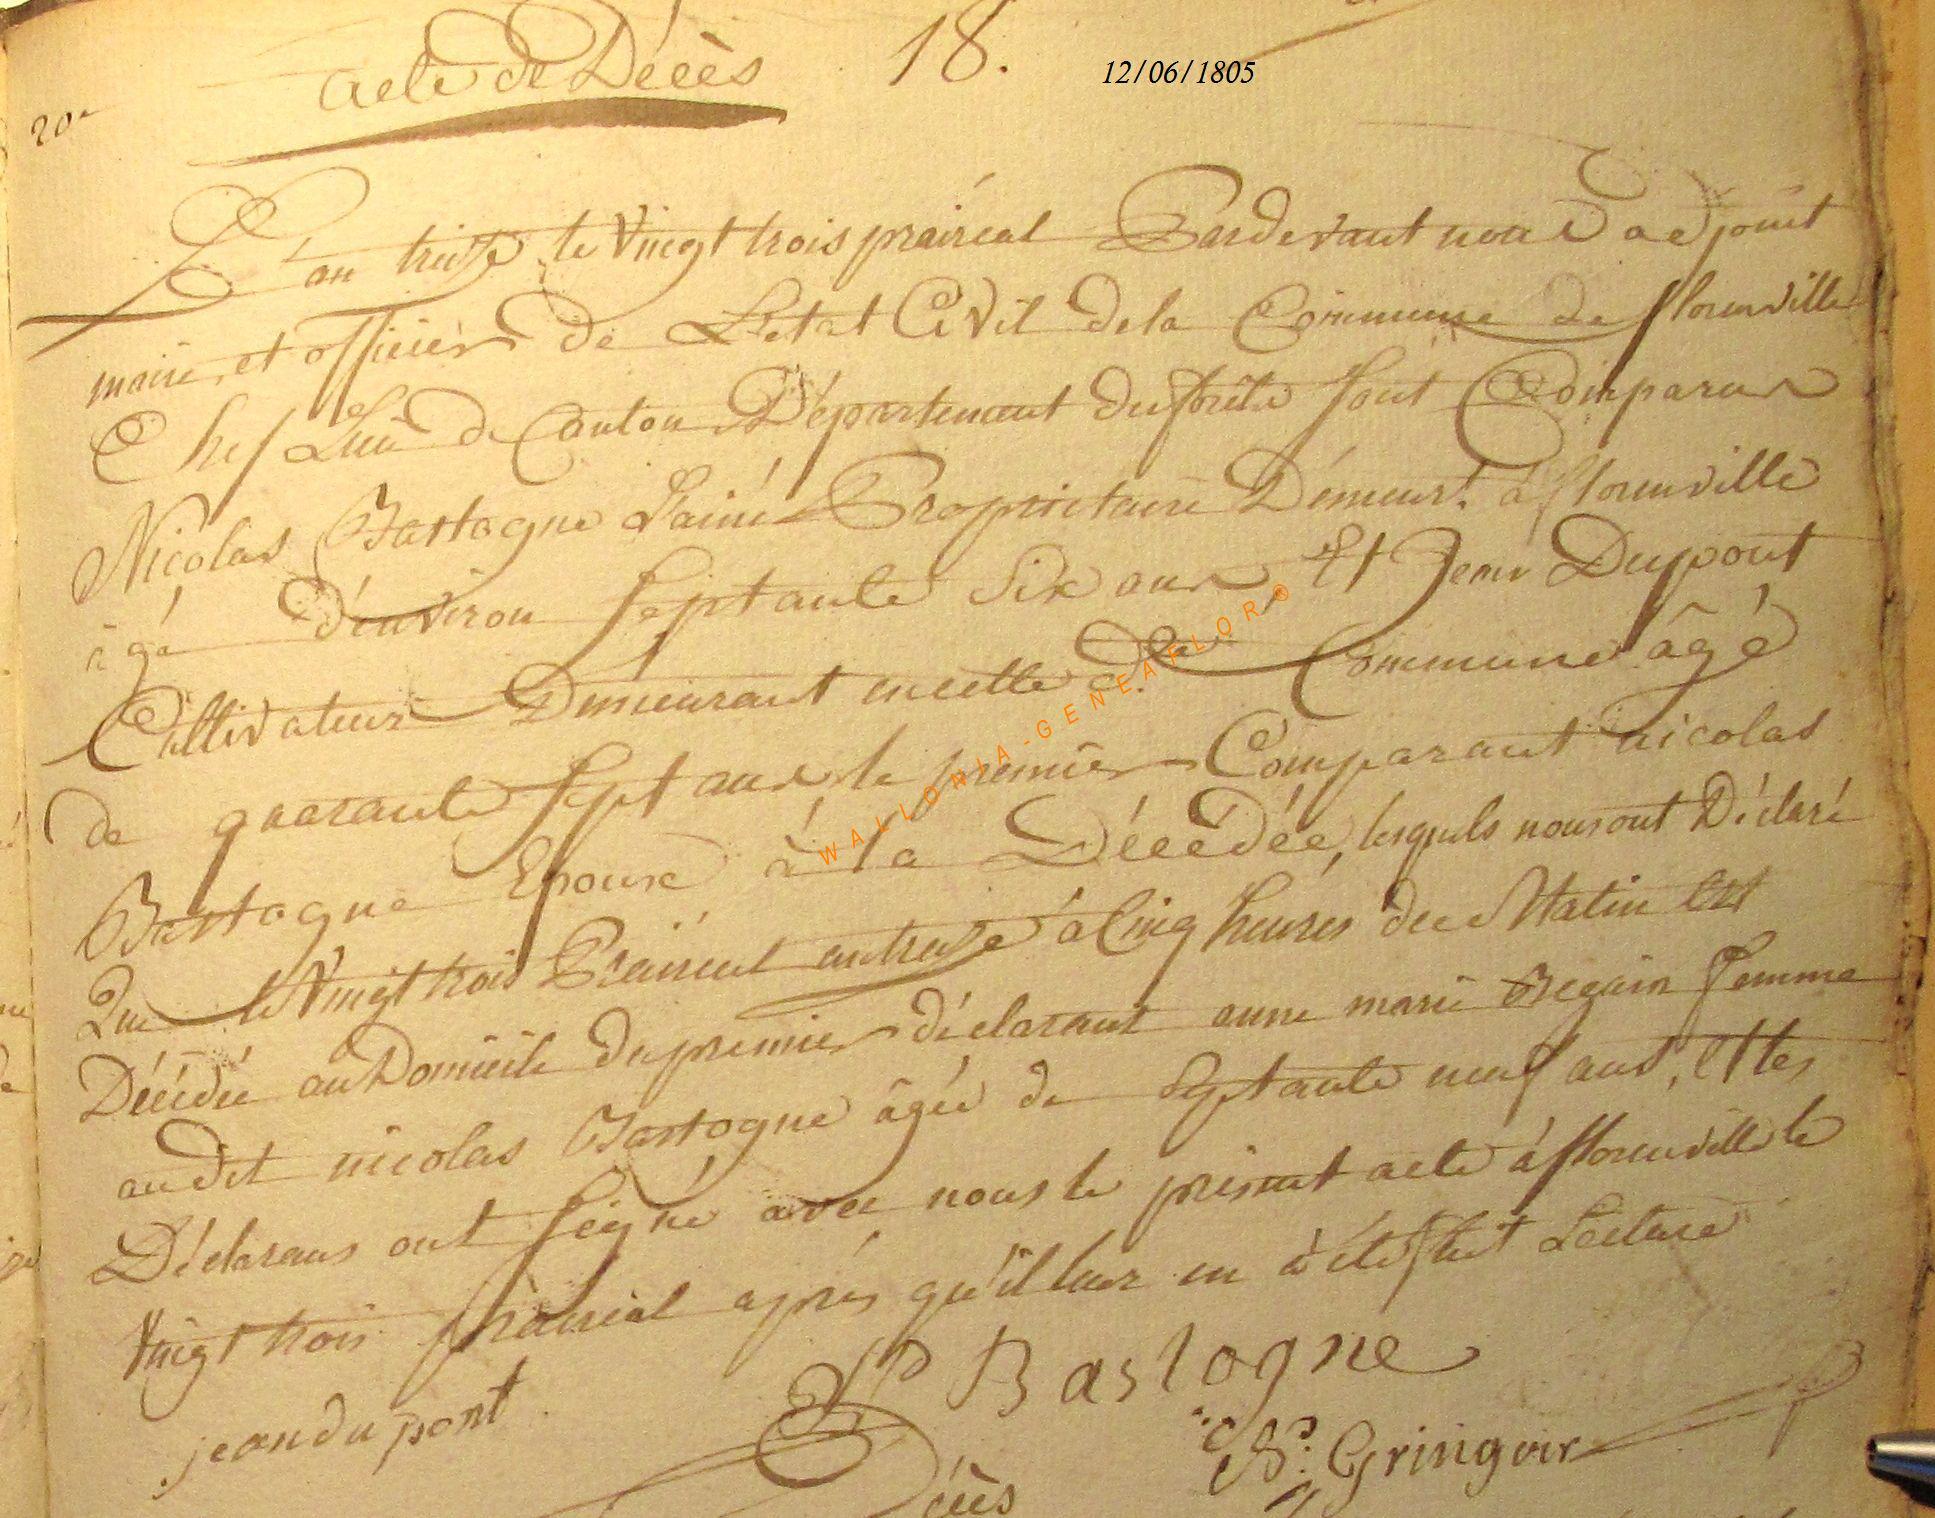 acte de Décès 18. 12/06/1805
20e
L'an treize le Vingt trois prairéal Pardevant nous adjoint
maire, et officier de L'etat Civil dela Commune de florenville
Chef Lieu de Canton Département du forêts sont Comparus
Nicolas Bastogne Lainé Propriétaire Demeurt. à florenville
âgé d'environ septante Six ans, Et Jean Dupont
Cultivateur Demeurant en cette d. Commune âgé
de quarante sept ans le premier Comparant nicolas
Bastogne Epoux à la Décédée, lesquels nous ont Déclaré
Que le Vingt trois Prairéal an treize à Cinq heures du Matin Est
Décédée au Domicile du premier déclarant anne marie femme
audit nicolas Bastogne âgée de Septante neuf ans, Et les
Déclarans ont signé avec nous le présent acte à florenville le
Vingt trois prairial après qu'il leur en à été fait Lecture
jean du pont
Bastogne
N: Gringoir
Décès
WALLONIA-GENEAFLOR®